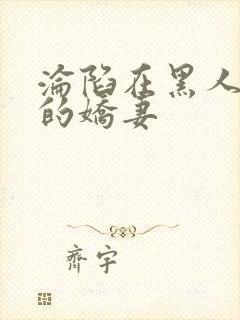 淪陷在黑人
的嬌妻
齊宇